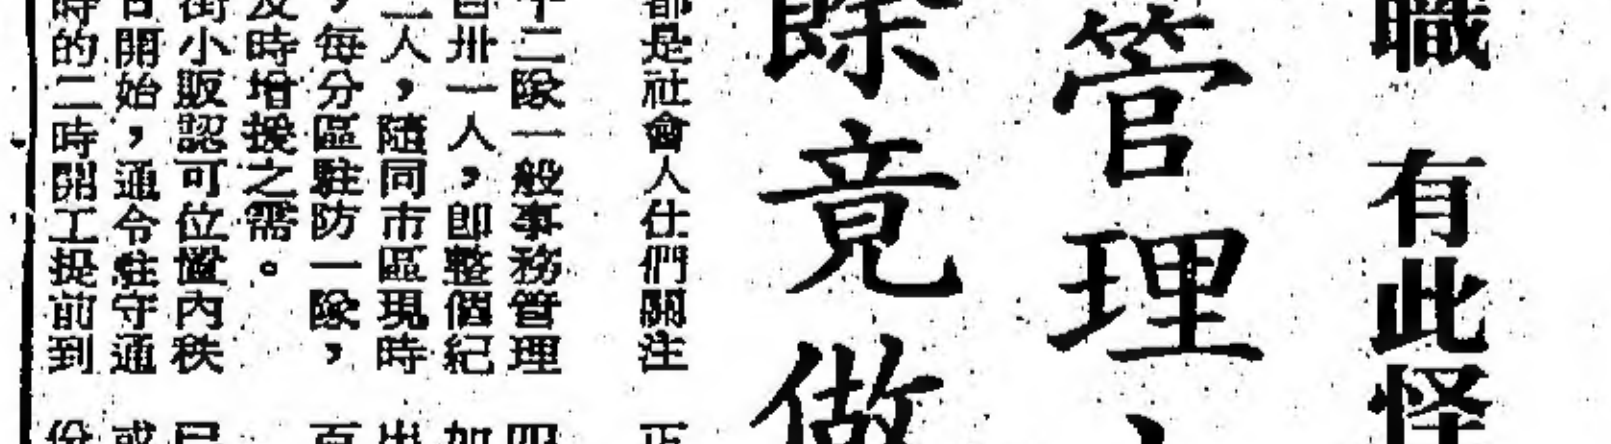 職 有此怪
管理
餘竟做
都是社會人仕們關注
十二隊一般事務管理
官卅一人，即整個紀
二人，隨同市區現時
，每分區駐防一隊，
及時增援之需。
街小販認可位置內秩
日開始，通令駐守通
時的二時開工提前到
正
四
加
出
百
已
或
份